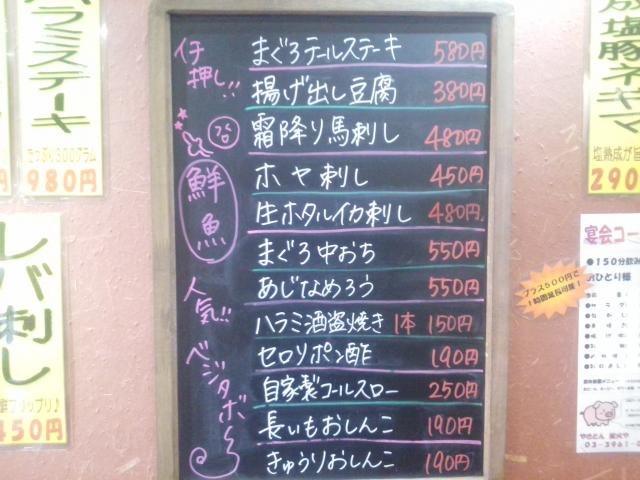 ハラミステーキ
たっぷり300グラム
980円
レバ刺し
450円
イチ押し!!
鮮魚
人気!!
ベジタボー
まぐろテールステーキ 580円
揚げ出し豆腐 380円
霜降り馬刺し 480円
ホヤ刺し 450円
生ホタルイカ刺し 480円
まぐろ中おち 550円
あじなめろう 550円
ハラミ酒盗焼き 1本 150円
セロリポン酢 190円
自家製コールスロー 250円
長いもおしんこ 190円
きゅうりおしんこ 190円
塩豚ネギマ
塩熟成が旨
290
宴会コー
●150分飲み
おひとり様
プラス500円で
1時間延長可能!
やきとん
03-3961-